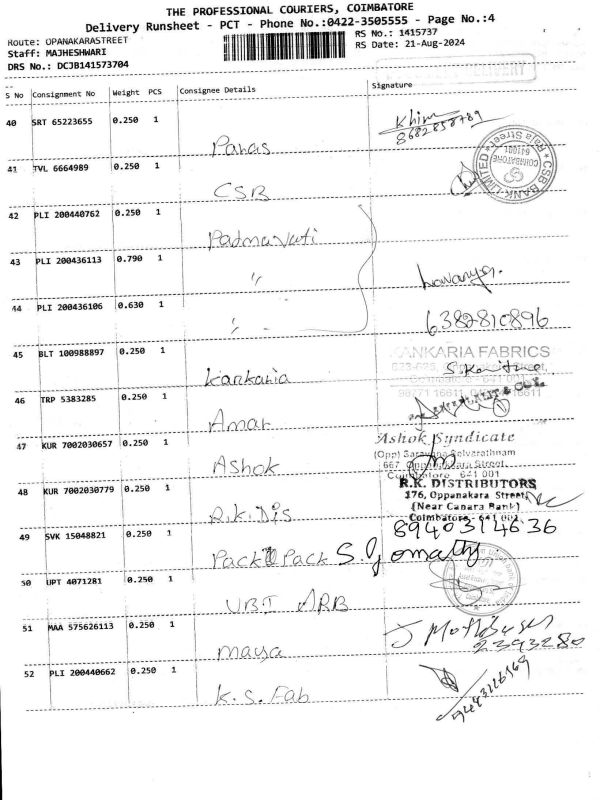 THE PROFESSIONAL COURIERS, COIMBATORE
Delivery Runsheet - PCT - Phone No.:0422-3505555 - Page No.:4
Route: OPANAKARASTREET
Staff: MAJHESHWARI
DRS No.: DCJB141573704
RS No.: 1415737
RS Date: 21-Aug-2024
DELIVERY
S No Consignment No Weight PCS Consignee Details Signature
40 SRT 65223655 0.250 1 Paras
8682858789
41 TVL 6664989 0.250 1 CSB
CSB BANK LIMITED
Raja Street
COIMBATORE
641001
42 PLI 200440762 0.250 1 Padmavati
43 PLI 200436113 0.790 1 "
Lavanya.
44 PLI 200436106 0.630 1 "
6382810896
45 BLT 100988897 0.250 1 Kankaria
KANKARIA FABRICS
46 TRP 5383285 0.250 1 Amar
47 KUR 7002030657 0.250 1 Ashok
Ashok Syndicate
(Opp) Saravana Selvarathnam
667, Oppanakkara Street,
Coimbatore - 641 001
48 KUR 7002030779 0.250 1 R.K. Dis
R.K. DISTRIBUTORS
176, Oppanakara Street,
(Near Canara Bank)
Coimbatore - 641 001
49 SVK 15048821 0.250 1 Pack Pack
8940314636
S. Gomathy
50 UPT 4071281 0.250 1 UBI ARB
51 MAA 575626113 0.250 1 maya
2393280
52 PLI 200440662 0.250 1 K.S. Fab